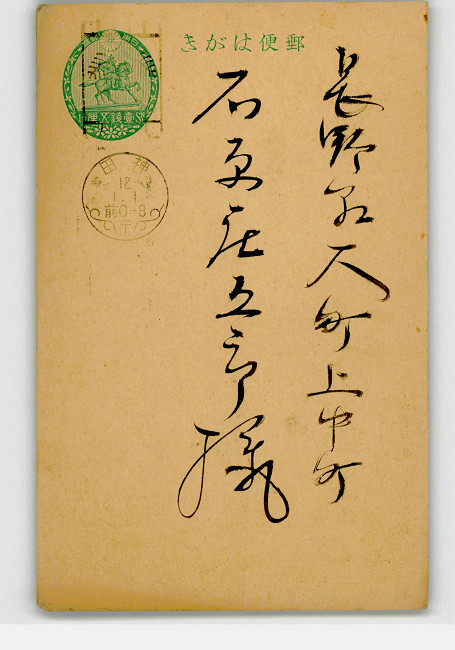 郵便はがき
長野県大町上中町
石原庄五郎様
壹錢五厘
神田
12
1.1
前0-8